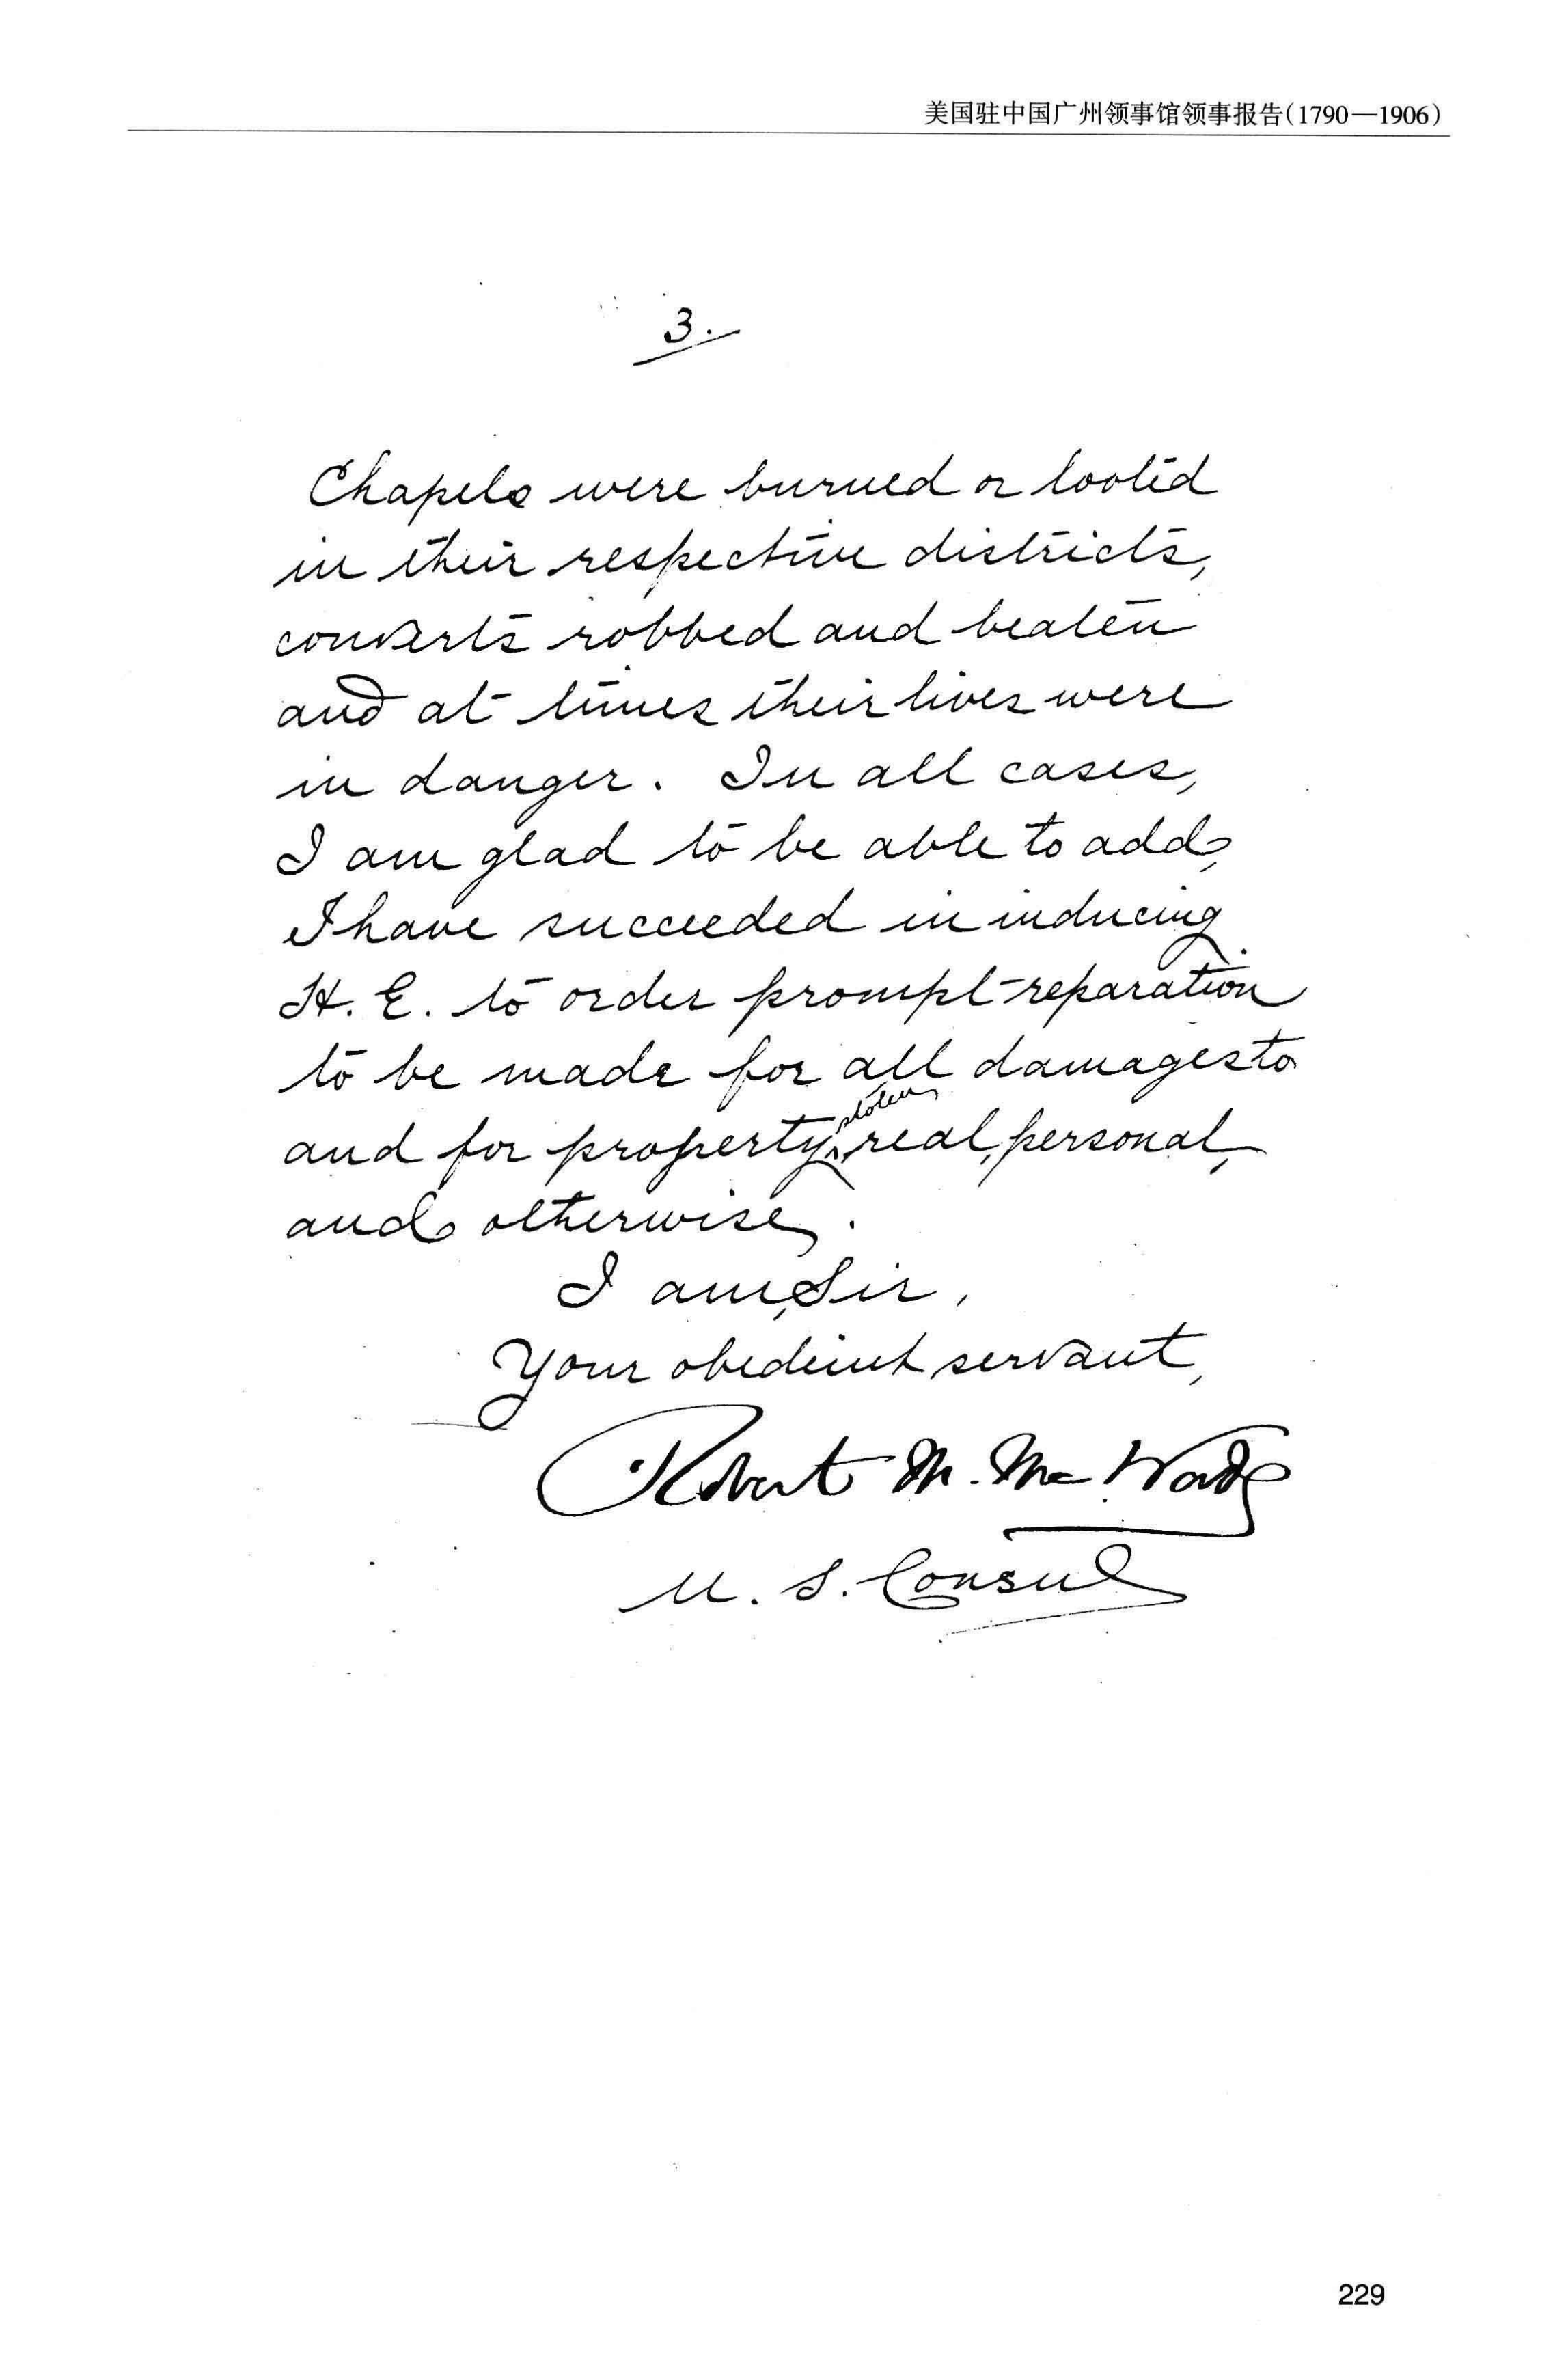 美国驻中国广州领事馆领事报告(1790—1906)
3.
Chapels were burned or looted
in their respective districts,
converts robbed and beaten
and at times their lives were
in danger. In all cases,
I am glad to be able to add,
I have succeeded in inducing
H. E. to order prompt reparation
to be made for all damages to
stolen
and for property, real, personal,
and otherwise.
I am, Sir,
Your obedient servant,
Robert M. McWade
U. S. Consul
229